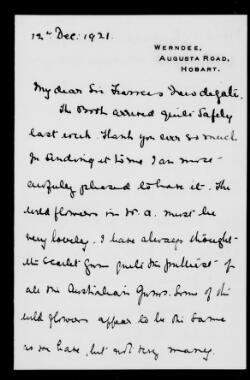 12th Dec. 1921.
WERNDEE,
AUGUSTA ROAD,
HOBART.
My dear Sir Francis Newdegate.
The Book arrived quite safely
last week. Thank you ever so much
for sending it to me I am most
awfully pleased to have it. The
wild flowers in W. A. must be
very lovely. I have always thought
the Scarlet Gum quite the prettiest of
all the Australian Gums. Some of the
wild flowers appear to be the same
as we have, but not very many.